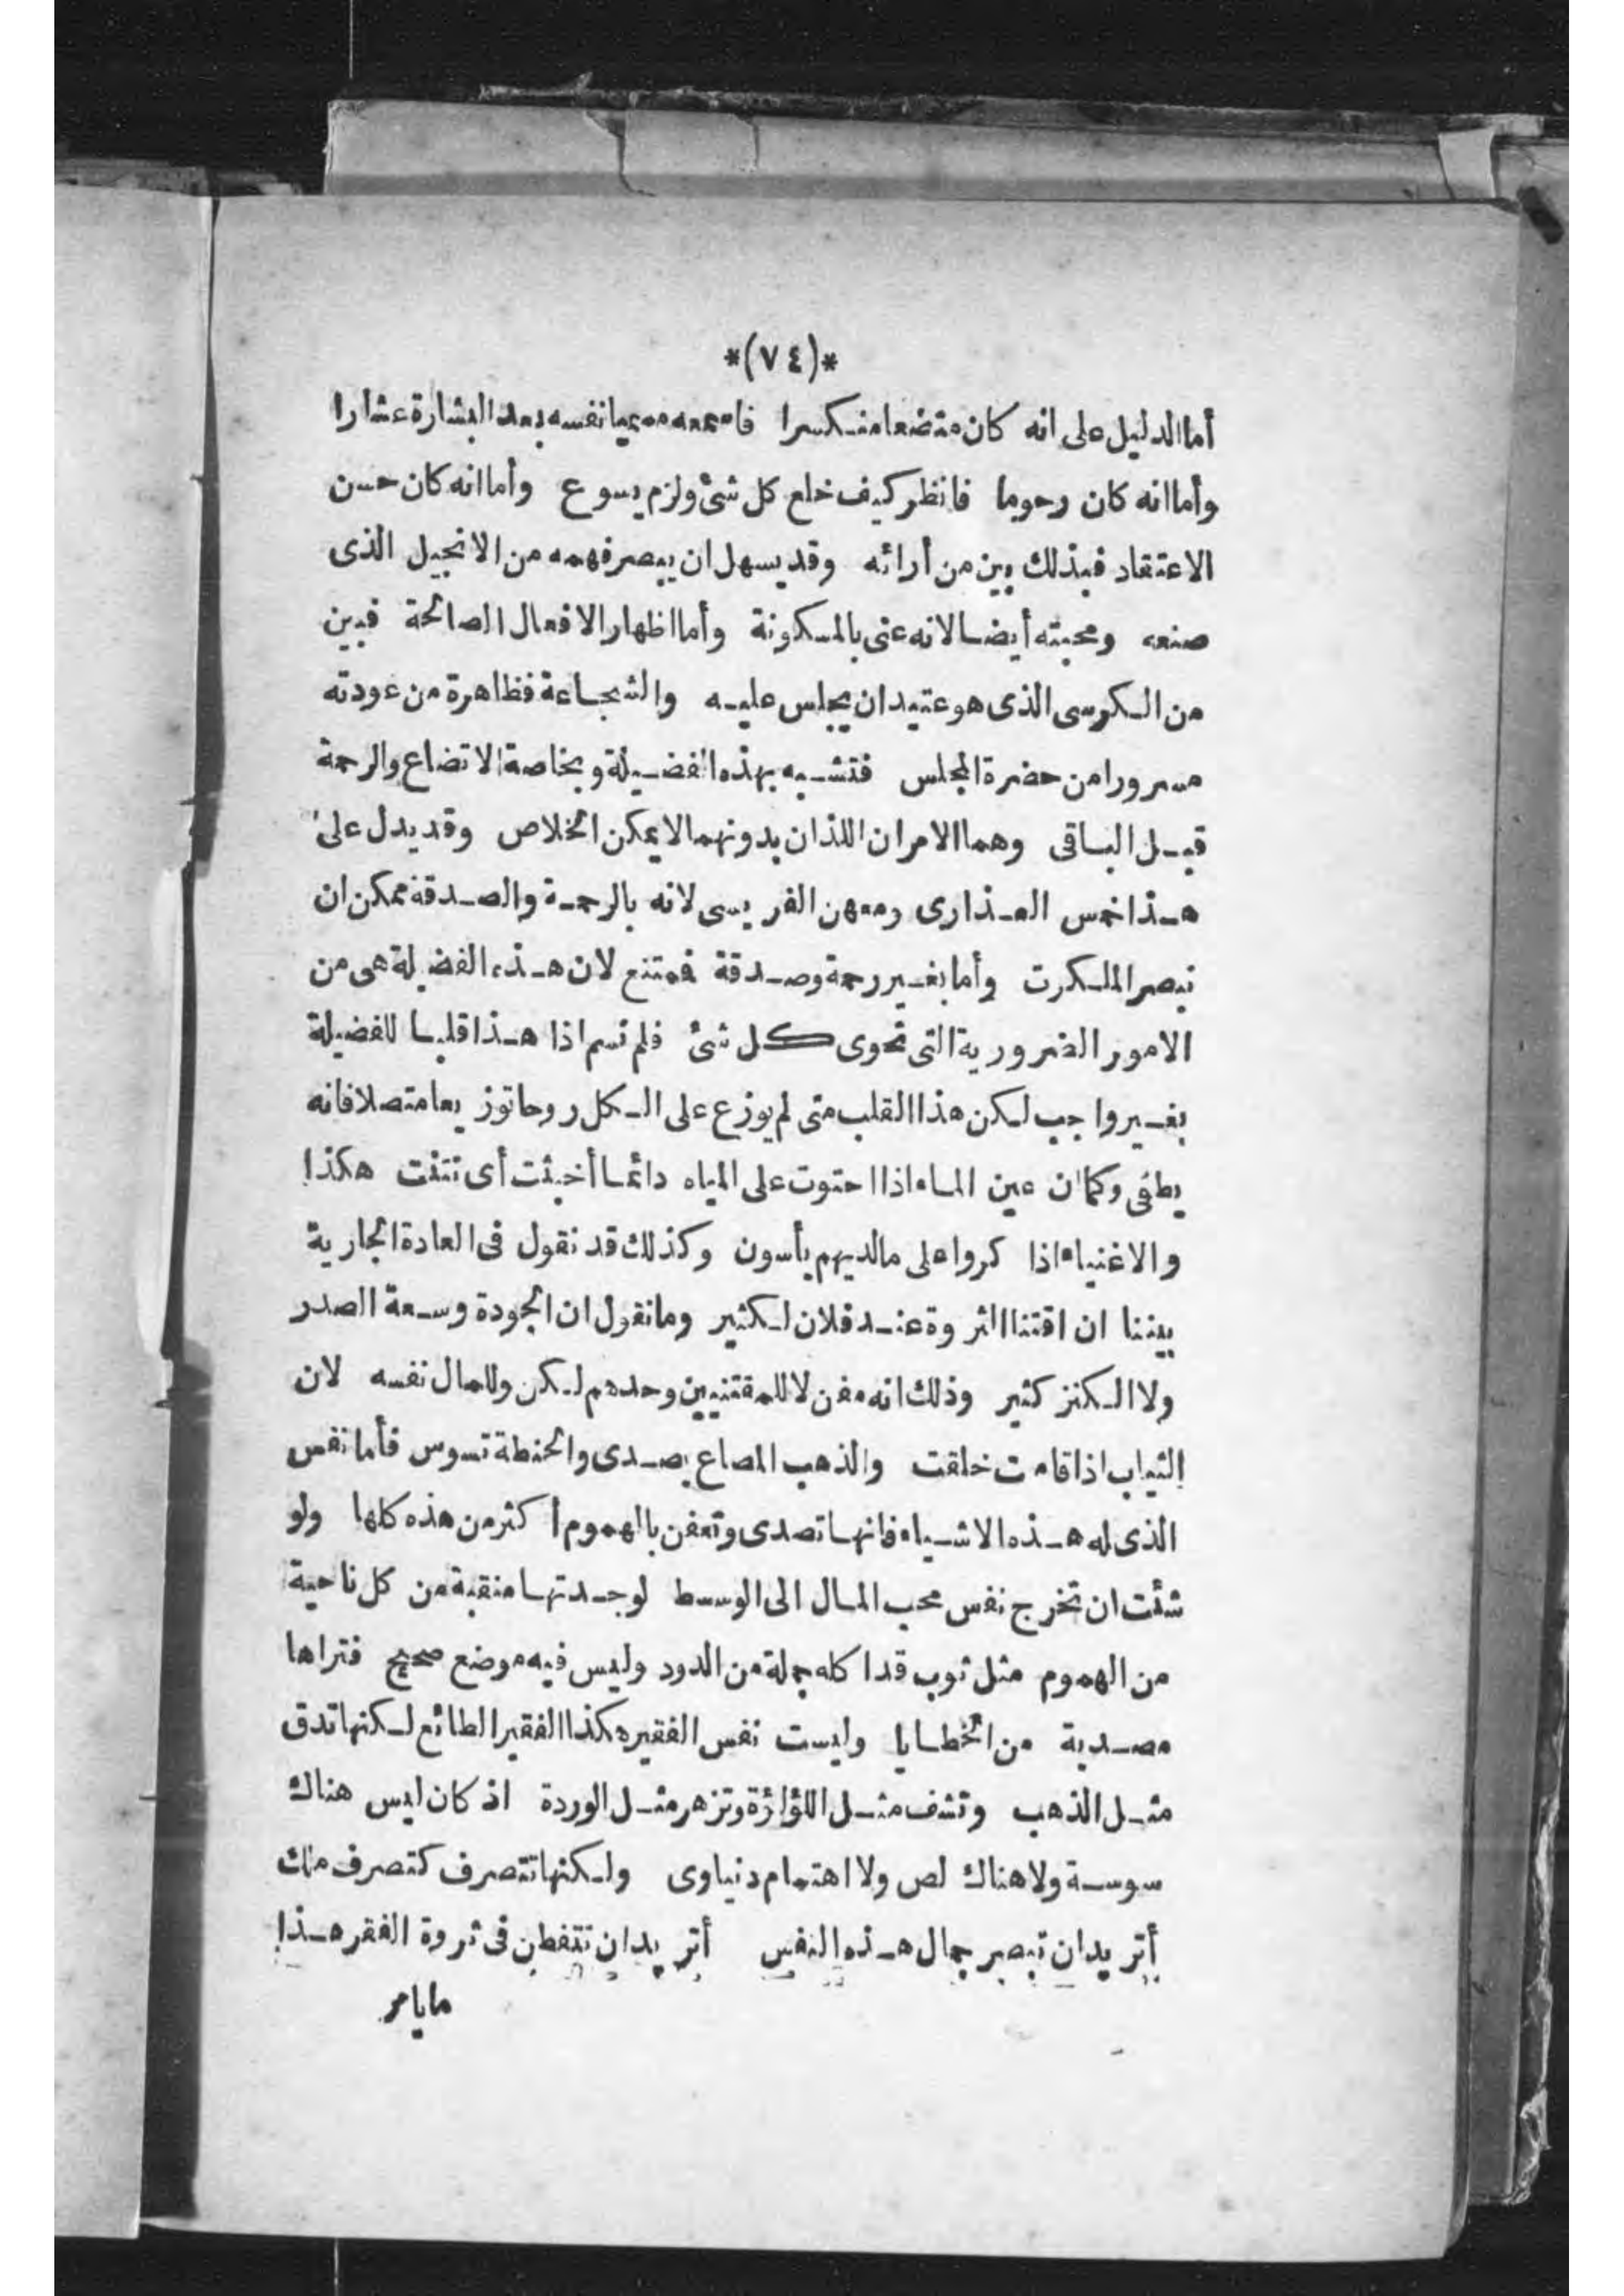 *(٧٤)*
أما الدليل على انه كان متضعا منكسرا فاسمعه مسميا نفسه بعد البشارة عشارا
وأما انه كان رحوما فانظر كيف خلع كل شئ ولزم يسوع وأما انه كان حسن
الاعتقاد فبذلك بين من أرائه وقد يسهل ان يبصر فهمه من الانجيل الذى
صنعه ومحبته أيضا لانه عنى بالمسكونة وأما اظهار الافعال الصالحة فبين
من الكرسى الذى هو عتيد ان يجلس عليه والشجاعة فظاهرة من عودته
مسرورا من حضرة المجلس فتشبه بهذه الفضيلة وبخاصة الاتضاع والرحمة
قبل الباقى وهما الامران اللذان بدونهما لا يمكن الخلاص وقد يدل على
هذا خمس العذارى ومعهن الفريسى لانه بالرحمة والصدقة ممكن ان
نبصر الملكوت وأما بغير رحمة وصدقة فمتنع لان هذه الفضيلة هى من
الامور الضرورية التى تحوى كل شئ فلم نسم اذا هذا قلبا للفضيلة
بغير واجب لكن هذا القلب متى لم يوزع على الكل روحا توزيعا متصلا فانه
يطفى وكما ان عين الماء اذا احتوت على المياه دائما أخبثت أى نتنت هكذا
والاغنياء اذا كروا على مالديهم يأسون وكذلك قد نقول فى العادة الجارية
بيننا ان اقتنا الثروة عند فلان لكثير وما نقول ان الجودة وسعة الصدر
ولا الكنز كثير وذلك انه معفن لا للمقتنيين وحدهم لكن وللمال نفسه لان
الثياب اذا قامت خلقت والذهب المصاع يصدى والحنطة تسوس فأما نفس
الذى له هذه الاشياء فانها تصدى وتعفن بالهموم أكثر من هذه كلها ولو
شئت ان تخرج نفس محب المال الى الوسط لوجدتها منقبة من كل ناحية
من الهموم مثل ثوب قد اكله جملة من الدود وليس فيه موضع صحيح فتراها
مصدية من الخطايا وليست نفس الفقير هكذا الفقير الطائع لكنها تدق
مثل الذهب وتشف مثل اللؤلؤة وتزهر مثل الوردة اذ كان ليس هناك
سوسة ولا هناك لص ولا اهتمام دنياوى ولكنها تتصرف كتصرف ملك
أتريد ان تبصر جمال هذه النفس أتريد ان تتفطن فى ثروة الفقر هذا
ما يامر